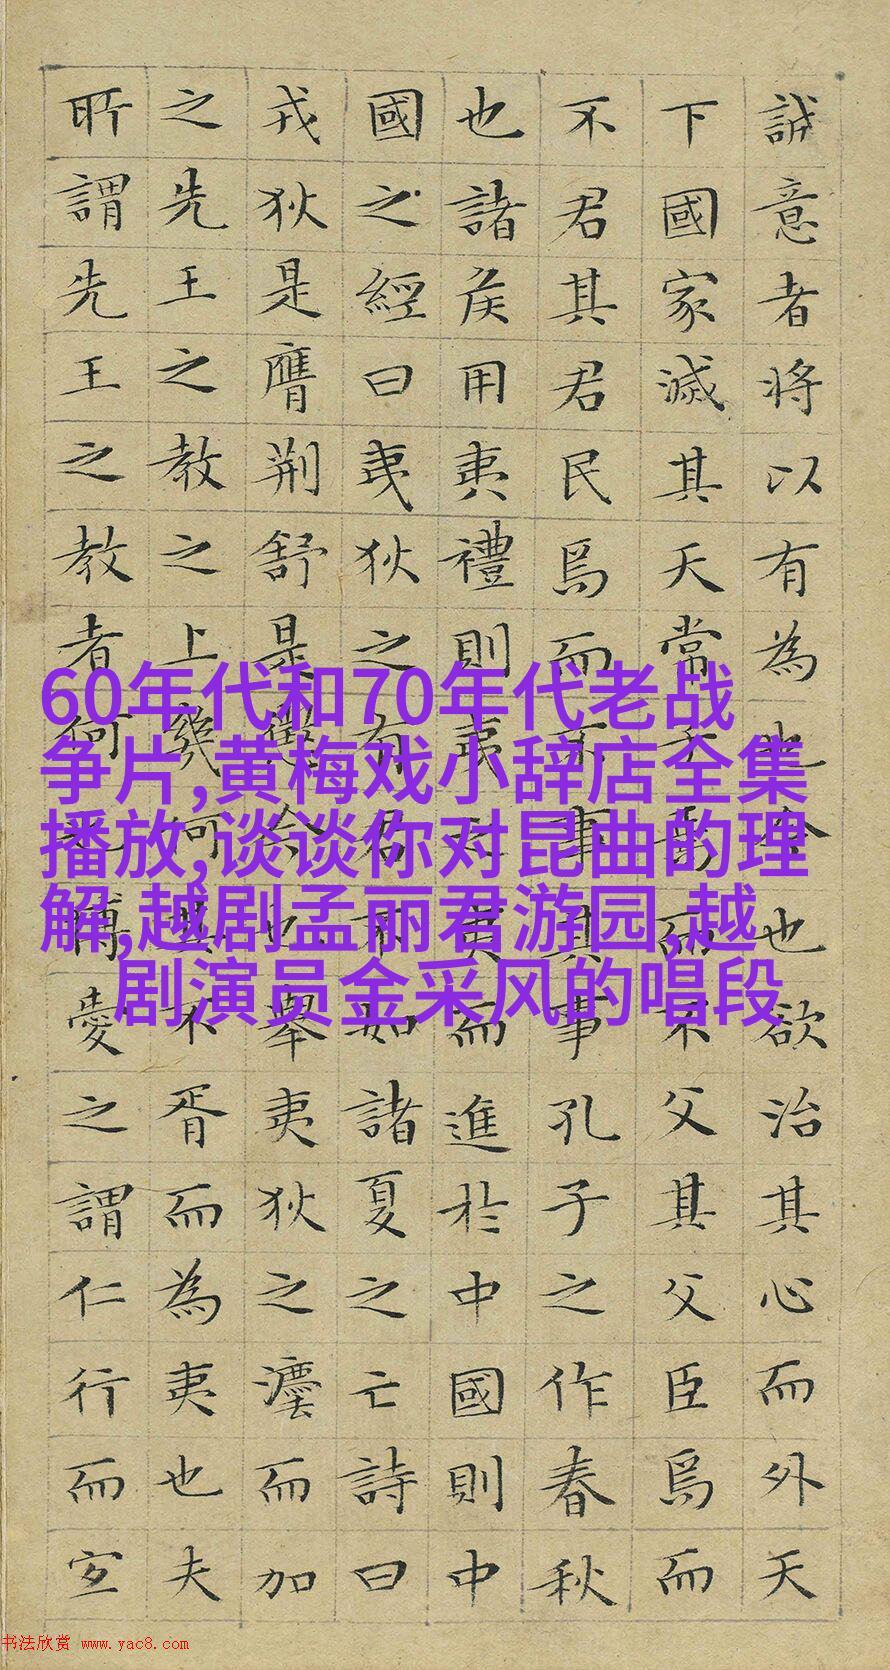 誠意者將以有為也今也欲治其心而外天
下國家滅其天常子焉而不父其父臣焉而
不君其君民焉而不事其事孔子之作春秋
也諸侯用夷禮則夷之夷而進於中國則中
國之經曰夷狄之有君不如諸夏之亡詩曰
戎狄是膺荆舒是懲今也舉夷狄之灋而加
之先王之教之上幾何其不胥而為夷也夫
所謂先王之教者何也博愛之謂仁行而宜
60年代和70年代老战
争片,黄梅戏小辞店全集
播放,谈谈你对昆曲的理
解,越剧孟丽君游园,越
剧演员金采风的唱段
书法欣赏 www.yac8.com